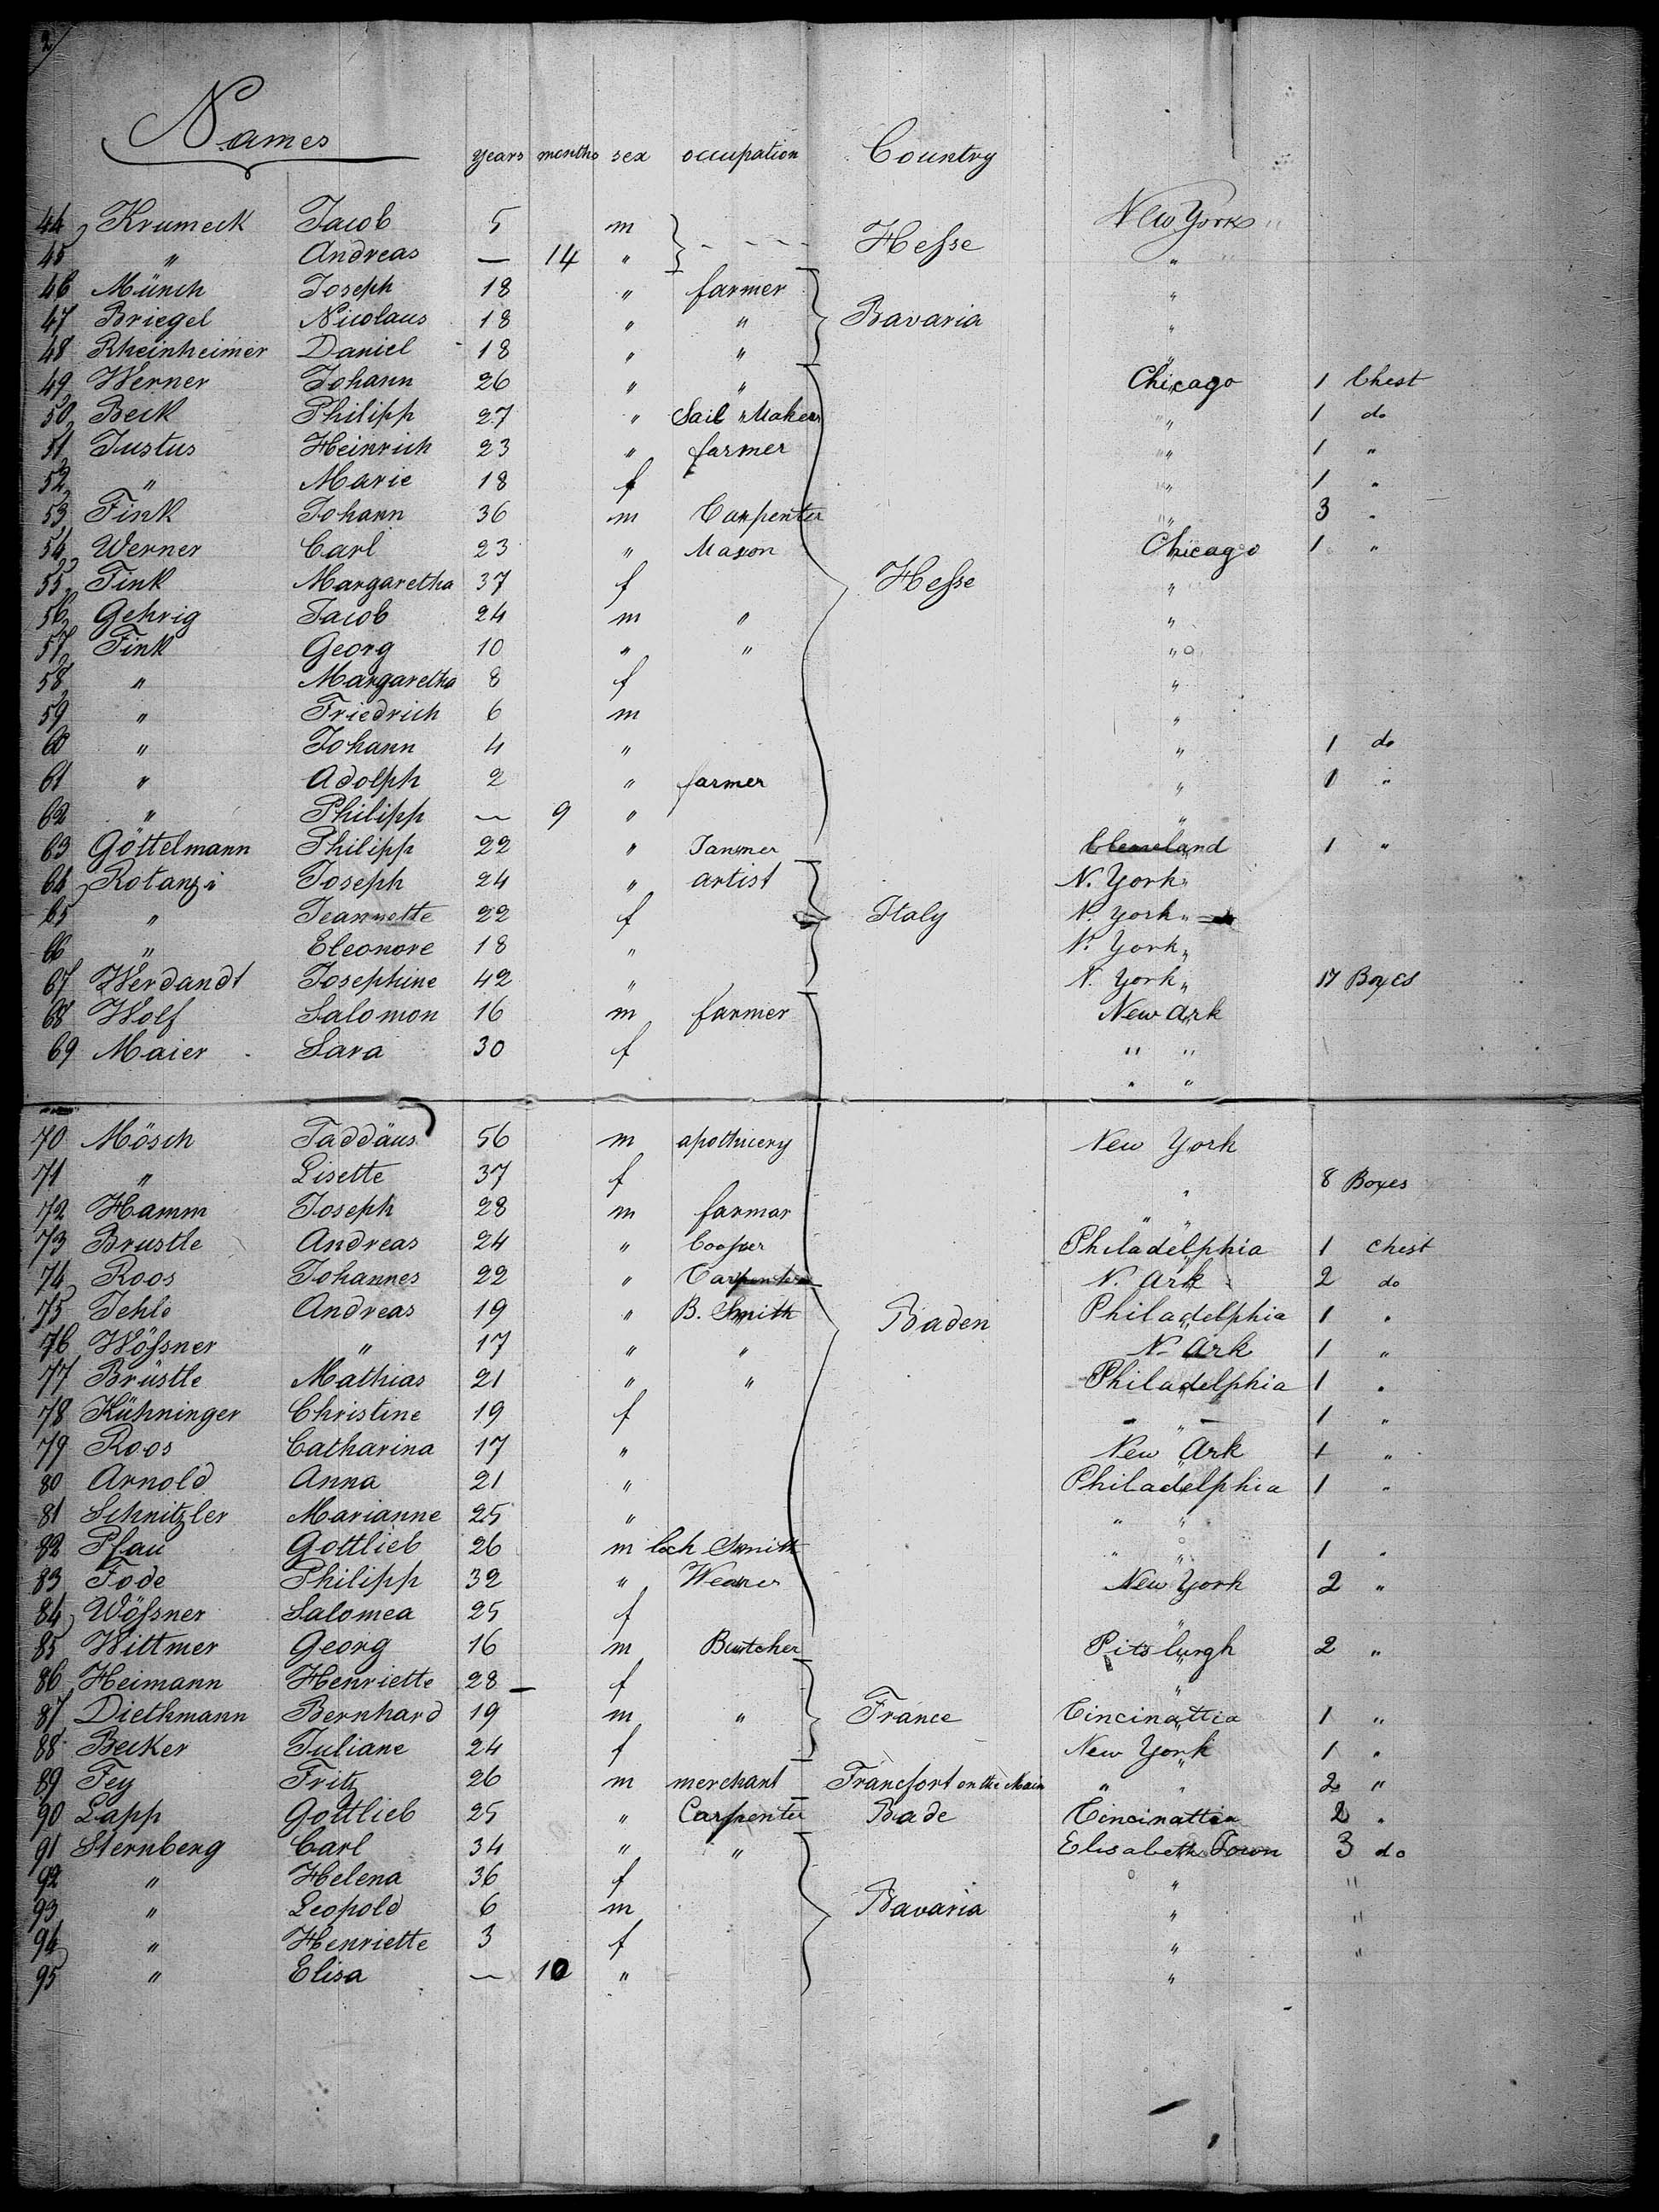 2
Names years months sex occupation Country
44 Krumeck Jacob 5 m - - - - Hesse New York "
45 " Andreas — 14 " "
46 Münch Joseph 18 " farmer "
47 Briegel Nicolaus 18 " " Bavaria "
48 Rheinheimer Daniel 18 " " "
49 Werner Johann 26 " " Chicago 1 Chest
50 Beck Philipp 27 " Sail Maker " 1 do
51 Justus Heinrich 23 " farmer " 1 "
52 " Marie 18 f " 1 "
53 Fink Johann 36 m Carpenter " 3 "
54 Werner Carl 23 " Mason Chicago 1 "
55 Fink Margaretha 37 f Hesse "
56 Gehrig Jacob 24 m " "
57 Fink Georg 10 " " "
58 " Margaretha 8 f "
59 " Friedrich 6 m "
60 " Johann 4 " " 1 do
61 " Adolph 2 " farmer " 1 "
62 " Philipp — 9 " "
63 Göttelmann Philipp 22 " Tanner Cleveland 1 "
64 Rotanzi Joseph 24 " artist N. York "
65 " Jeannette 22 f Italy N. York "
66 " Eleonore 18 " N. York "
67 Werdandt Josephine 42 " N. York " 17 Boxes
68 Wolf Salomon 16 m farmer New Ark
69 Maier Sara 30 f " "
" "
70 Mösch Taddäus 56 m apothicery New York
71 " Lisette 37 f " 8 Boxes
72 Hamm Joseph 28 m farmar " "
73 Brustle Andreas 24 " Cooper Philadelphia 1 Chest
74 Roos Johannes 22 " Carpenter N. Ark 2 do
75 Jehle Andreas 19 " B. Smith Baden Philadelphia 1 "
76 Wößner " 17 " " N. Ark 1 "
77 Brüstle Mathias 21 " " Philadelphia 1 "
78 Kühninger Christine 19 f — " — 1 "
79 Roos Catharina 17 " New Ark 1 "
80 Arnold Anna 21 " Philadelphia 1 "
81 Schnitzler Marianne 25 " " "
82 Pfau Gottlieb 26 m loch Smith " " 1 "
83 Fode Philipp 32 " Weaver New York 2 "
84 Wößner Salomea 25 f "
85 Wittmer Georg 16 m Butcher Pitsburgh 2 "
86 Heimann Henriette 28 — f "
87 Diethmann Bernhard 19 m " France Cincinattia 1 "
88 Becker Juliane 24 f New York 1 "
89 Fey Fritz 26 m merchant Francfort on the Main " " 2 "
90 Lapp Gottlieb 25 " Carpenter Bade Cincinattia 2 "
91 Sternberg Carl 34 " " Elisabeth Town 3 do
92 " Helena 36 f " "
93 " Leopold 6 m Bavaria " "
94 " Henriette 3 f " "
95 " Elisa — 10 " "